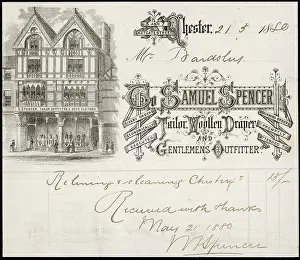 Chester, 21 5 1880
Mr Bardsley
To Samuel Spencer
Tailor, Woollen Draper
and
Gentlemen's Outfitter
Relining & cleaning 18/-
Received with thanks
May 21 1880
Spencer